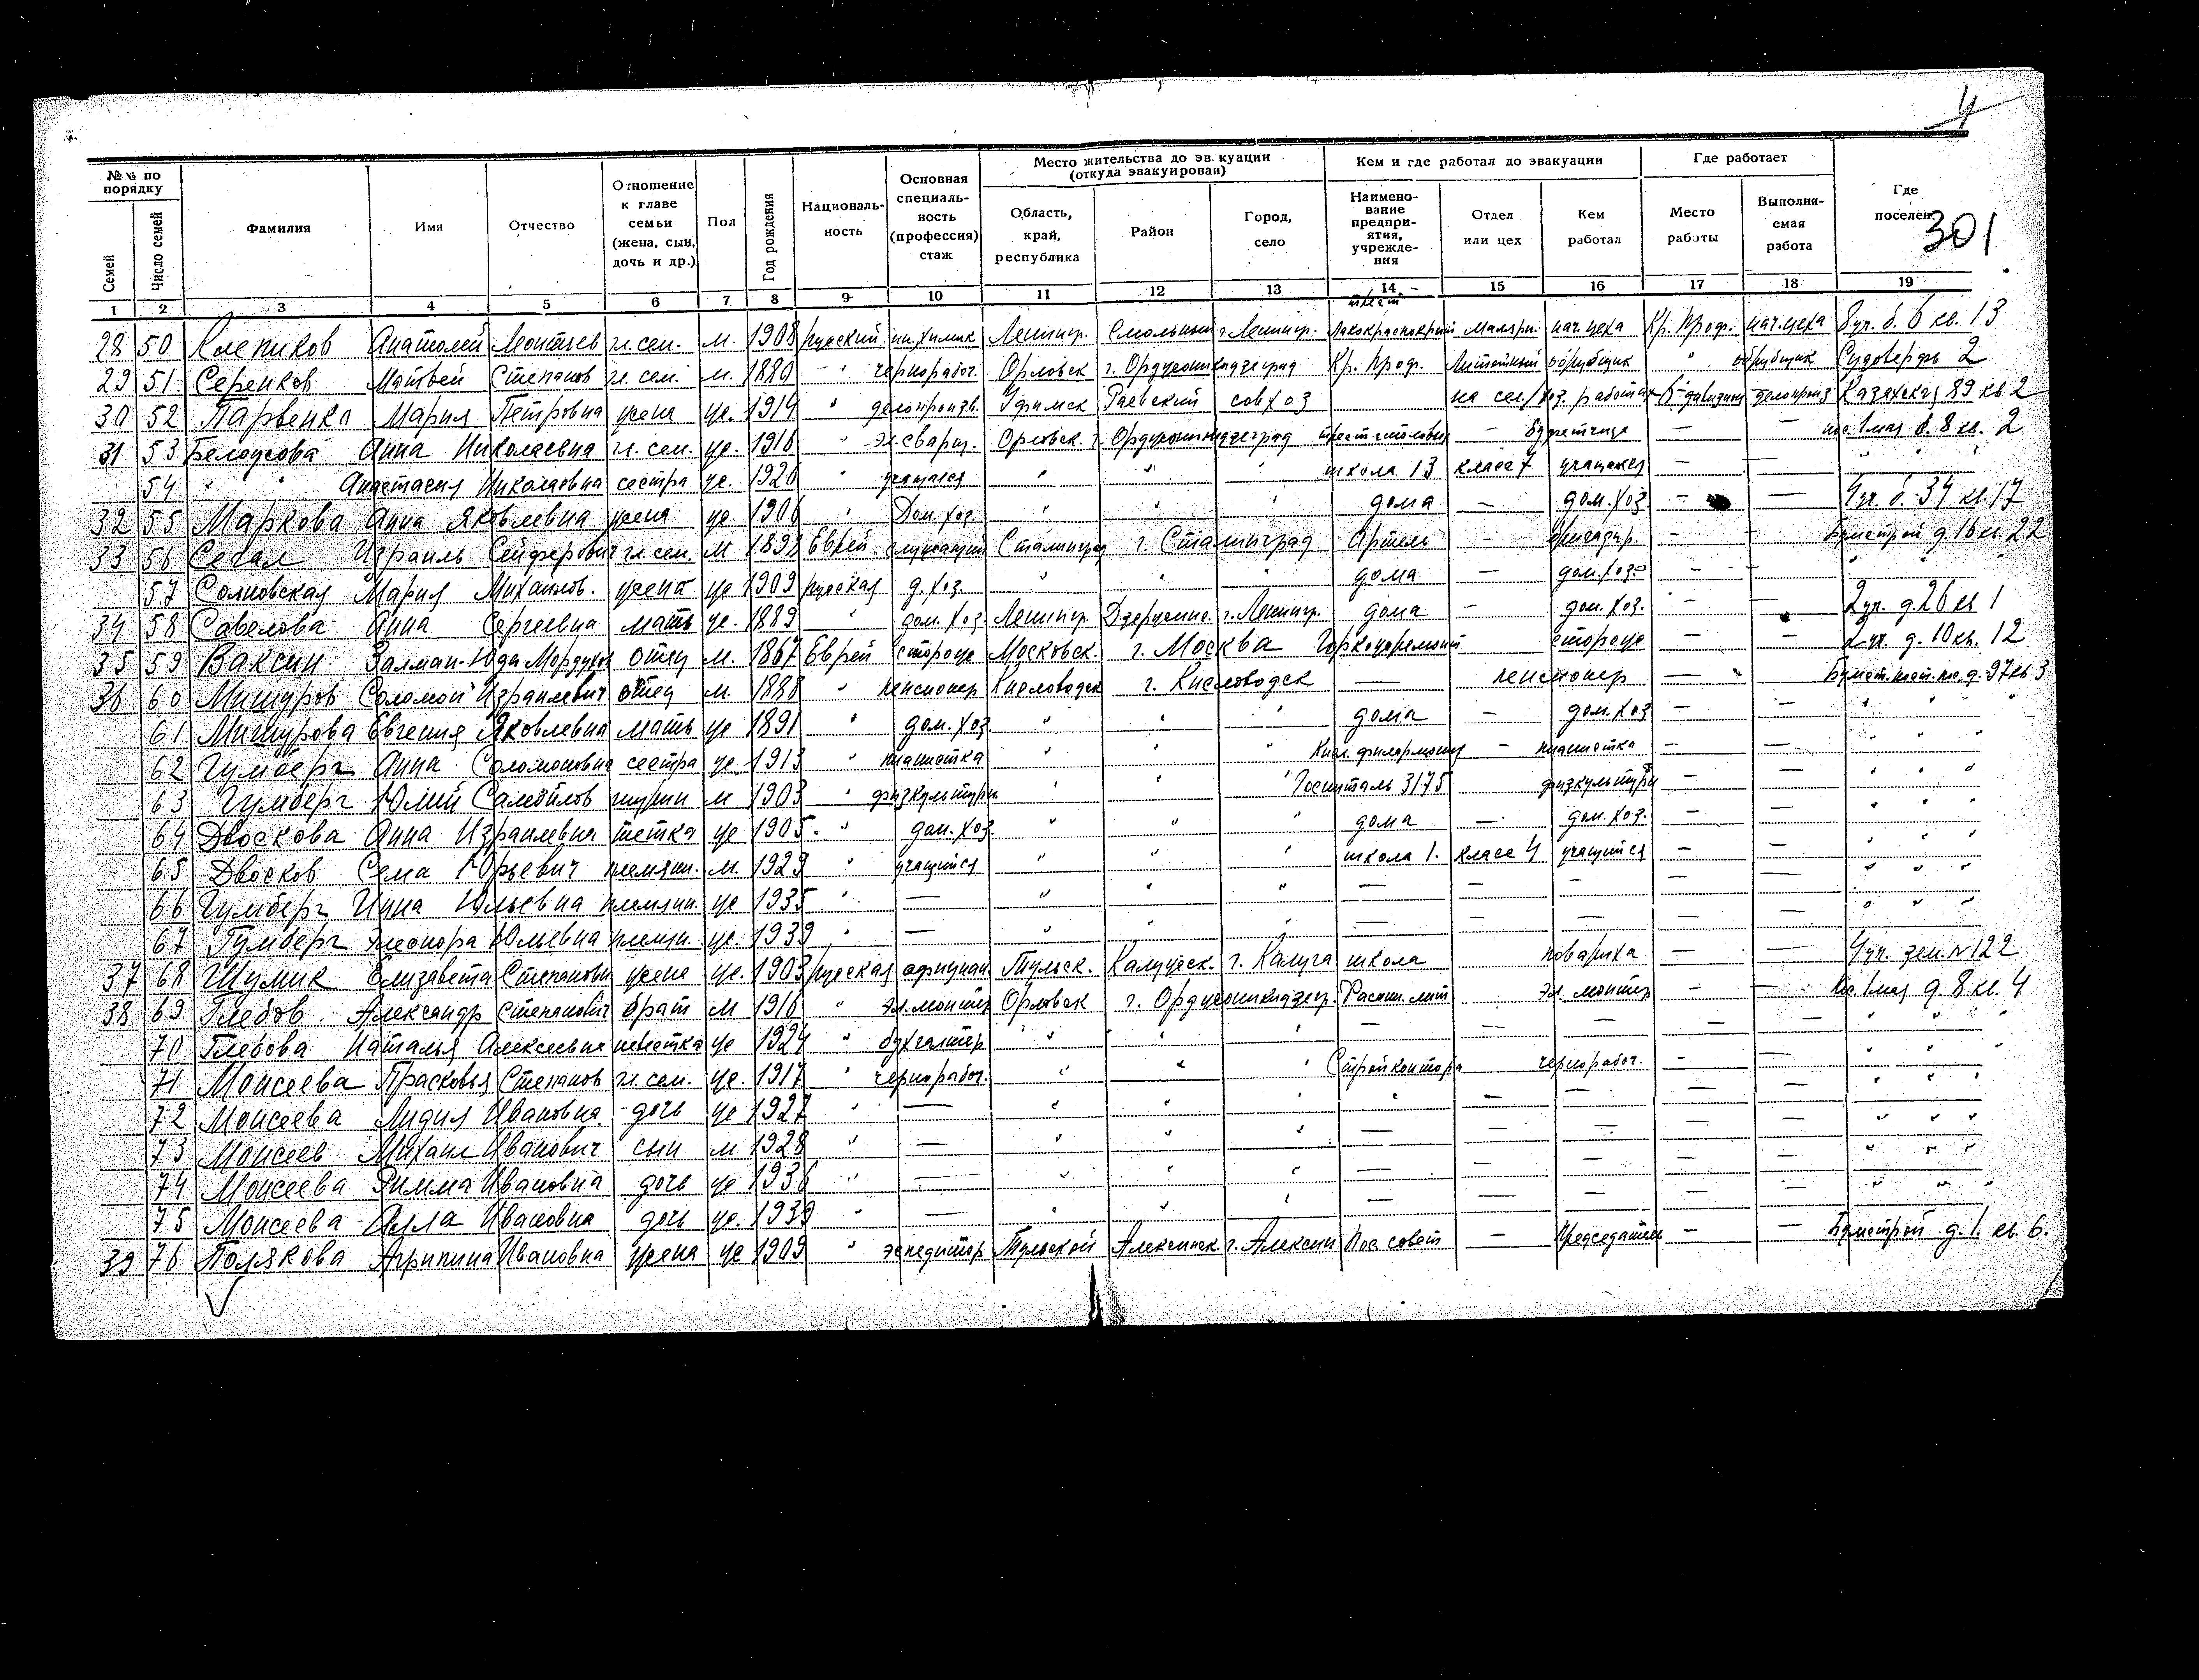 4
№№ по порядку
Семей
Число семей
Фамилия
Имя
Отчество
Отношение к главе семьи (жена, сын, дочь и др.)
Пол
Год рождения
Националь-ность
Основная специаль-ность (профессия) стаж
Место жительства до эв.куации (откуда эвакуирован)
Область, край, республика
Район
Город, село
Кем и где работал до эвакуации
Наимено-вание предпри-ятия, учрежде-ния
Отдел или цех
Кем работал
Где работает
Место работы
Выполня-емая работа
Где поселен
301
1 2 3 4 5 6 7 8 9 10 11 12 13 14 15 16 17 18 19
28 50 Клепиков Анатолий Леонтьев гл. сем. м. 1908 русский инж.химик Ленингр. Смольный г. Ленингр. трест Лакокрасочный малярн. нач. цеха Кр. Проф. нач. цеха 8 уч. б. 6 кв. 13
29 51 Серенков Матвей Степанов гл. сем. м. 1880 " чернорабоч. Орловск г. Орджоникидзеград Кр. Проф. Литейный обрубщик " обрубщик 2
30 52 Парвенко Мария Петровна жена ж. 1914 " делопроизв. Уфимск Раевский совхоз на сел/хоз. работах делопроиз Казахская 89 кв 2
31 53 Белоусова Анна Николаевна гл. сем. ж. 1916 " эл. сварщ. Орловск. г. Орджоникидзеград трест столовых — буфетчица — — пос. 1 мая б. 8 кв. 2
54 " Анастасия Николаевна сестра ж. 1926 " учащаяся " " " школа 13 класс 7 учащаяся — — " " "
32 55 Маркова Анна Яковлевна жена ж 1906 " Дом. хоз. " " " дома — дом. хоз — — 4 уч. б. 34 кв. 17
33 56 Сегал Израиль гл. сем. м 1898 Еврей служащий Сталинград г. Сталинград Артель — бригадир. — — Бумстрой д. 16 кв. 22
57 Солновская Мария Михайлов. жена ж 1909 русская д. хоз. " " " дома — дом. хоз. — — " "
34 58 Савелова Анна Сергеевна мать ж. 1889 " дом. хоз. Ленингр. Дзержинс. г. Ленингр. дома — дом. хоз. — — 2 уч. д. 26 кв 1
35 59 Ваксин Залман-Юда Мордухов отец м. 1867 Еврей сторож Московск. г. Москва сторож — — 2 уч. д. 10 кв. 12
36 60 Мишуров Соломон Израилевич отец м. 1888 " пенсионер Кисловодск г. Кисловодск — пенсионер — д. 97 кв 3
61 Мишурова Евгения Яковлевна мать ж 1891 " дом. хоз. " " " дома — дом. хоз — — " "
62 Гумберг Анна Соломоновна сестра ж. 1913 " пианистка " " " Кисл. филармония — пианистка — — " " "
63 Гумберг Юлий Самойлов м 1903 " физкультурн. " " " Госпиталь 3175 физкультурн — — " " "
64 Двоскова Анна Израилевна тетка ж 1905. " дом. хоз. " " " дома — дом. хоз. — — " " "
65 Двосков Сема Юрьевич племян. м. 1929 " учащийся " " " школа 1. класс 4 учащийся — — " " "
66 Гумберг Инна Юльевна племян. ж 1935 " — " " " — — — — — " " "
67 Гумберг Элеонора Юльевна племян. ж. 1939 " — " " " — — — — — " " "
37 68 Шумик Елизавета Степановн жена ж. 1903 русская официан. Тульск. Калужск. г. Калуга школа повариха — — 4 уч. зем. № 122
38 69 Глебов Александр Степанович брат м 1916 " эл. монтер Орловск г. Орджоникидзегр. эл. монтер — — пос. 1 мая д. 8 кв. 4
70 Глебова Наталья Алексеевна невестка ж 1924 " бухгалтер " " " — — — — — " " "
71 Моисеева Прасковья Степанов гл. сем. ж. 1917 " чернорабоч. " " " Стройконтора чернорабоч. — — " " "
72 Моисеева Лидия Ивановна дочь ж 1927 " — " " " " — — — — " " "
73 Моисеев Михаил Иванович сын м 1928 " — " " " — — — — — " " "
74 Моисеева Римма Ивановна дочь ж 1936 " — " " " — — — — — " " "
75 Моисеева Алла Ивановна дочь ж. 1939 " — " " " — — — — — " " "
39 76 Полякова Агрипина Ивановна жена ж 1909 " экспедитор Тульской Алексинск. г. Алексин Пос. совет — Председатель — — Бумстрой д. 1. кв. 6.